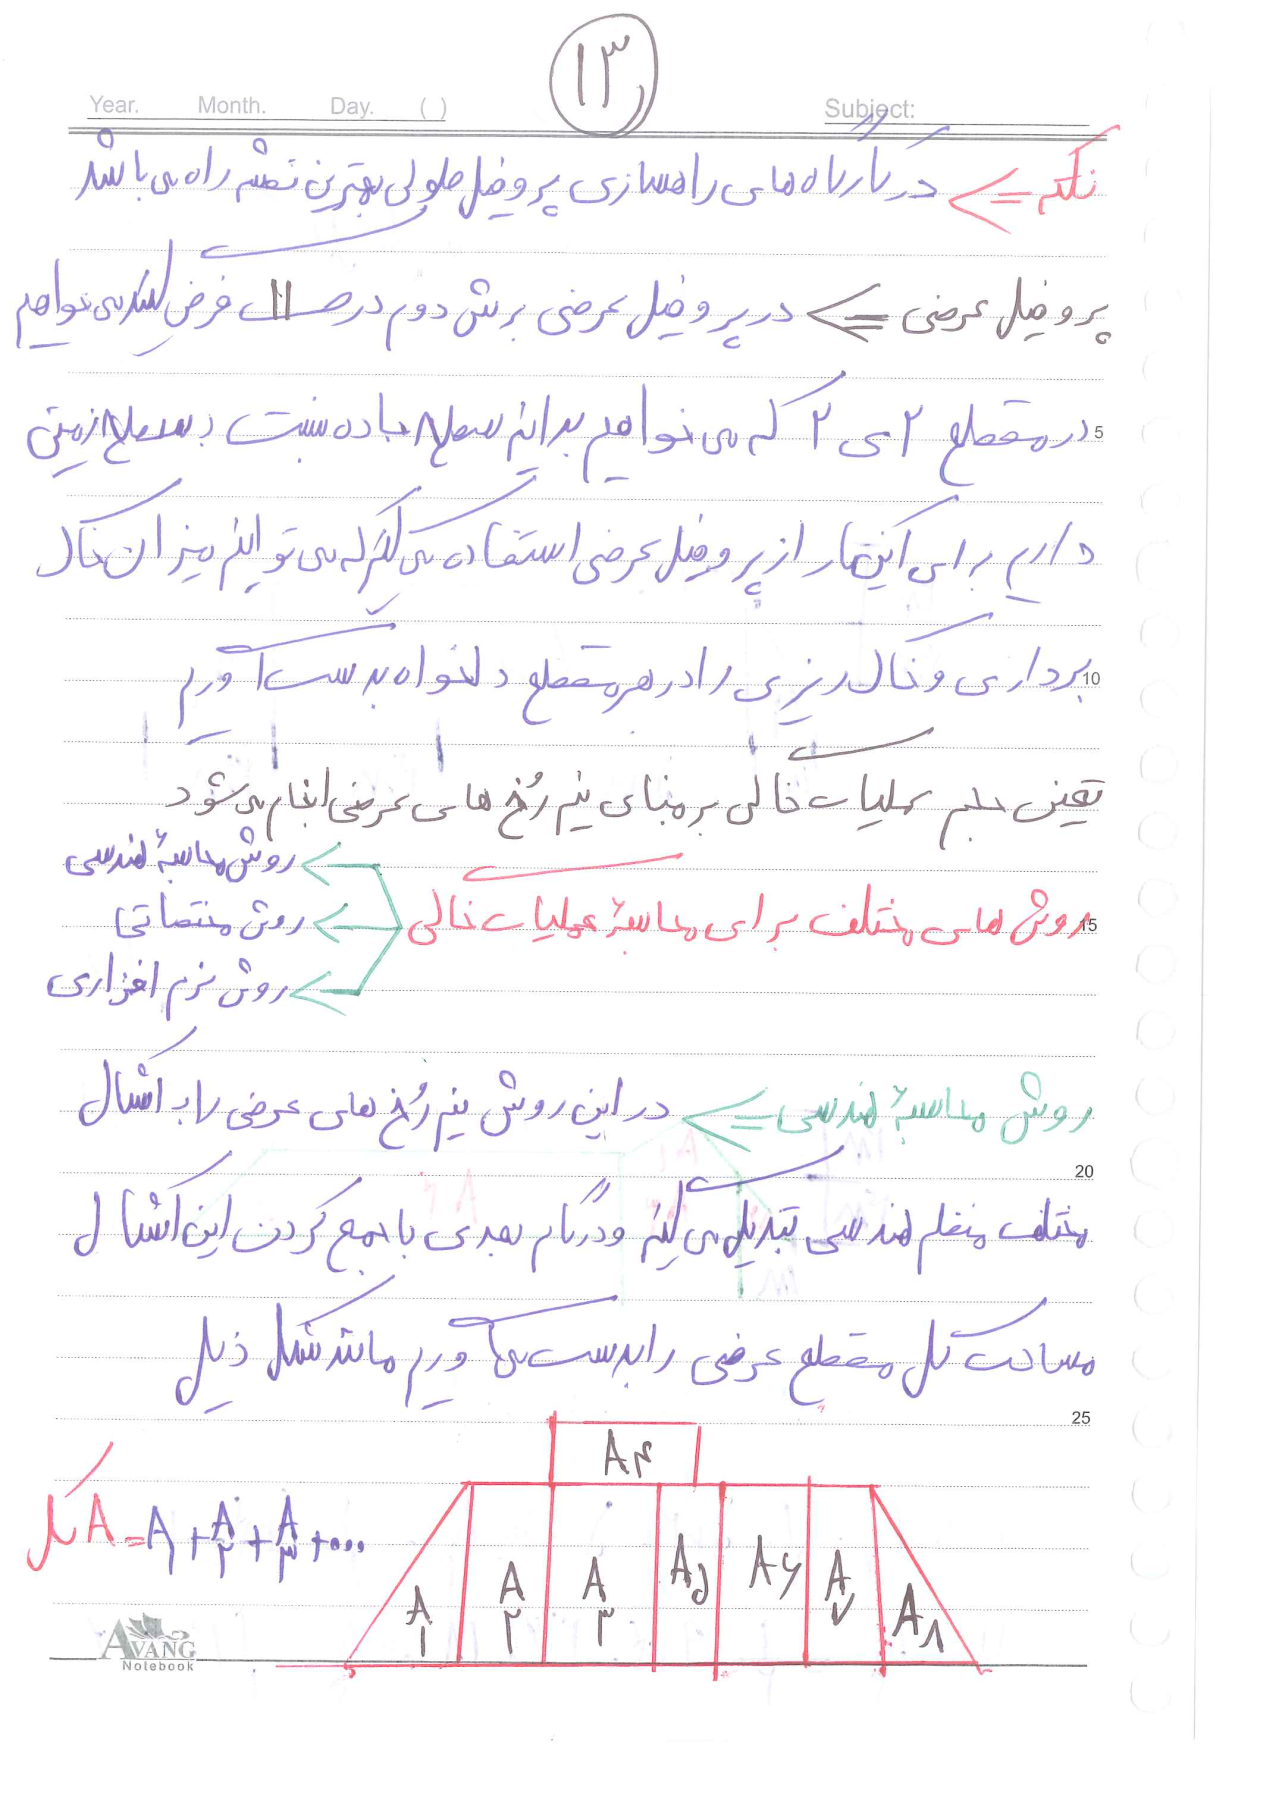 ۱۳
Year. Month. Day. ( ) Subject:
نکته => در کارگاه های راهسازی پروفیل طولی بهترین نقشه راه می باشد
پروفیل عرضی => در پروفیل عرضی برش دوم در ص ۱۱ فرض کنید می خواهیم
5 در مقطع ۲ ی ۲ که می خواهیم بدانیم سطح جاده نسبت به سطح زمین
داریم برای این کار از پروفیل عرضی استفاده می کنیم که می توانیم میزان خاک
10 برداری و خاک ریزی را در هر مقطع دلخواه بدست آوریم
تعیین حجم عملیات خاکی بر مبنای نیم رُخ های عرضی انجام می شود
روش محاسبهٔ هندسی
15 روش های مختلف برای محاسبهٔ عملیات خاکی روش مختصاتی
روش نرم افزاری
روش محاسبهٔ هندسی => در این روش نیم رُخ های عرضی را به اشکال
20
مختلف منظم هندسی تبدیل می کنیم و در گام بعدی با جمع کردن این اشکال
مساحت کل مقطع عرضی را بدست می آوریم مانند شکل ذیل
25
A۴
کل A = A۱ + A۲ + A۳ + ...
A۱ A۲ A۳ A۵ A۶ A۷ A۸
AVANG
Notebook